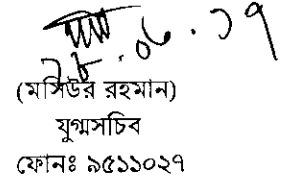 ২৮.০৬.১৭
(মসিউর রহমান)
যুগ্মসচিব
ফোনঃ ৯৫১১০২৭